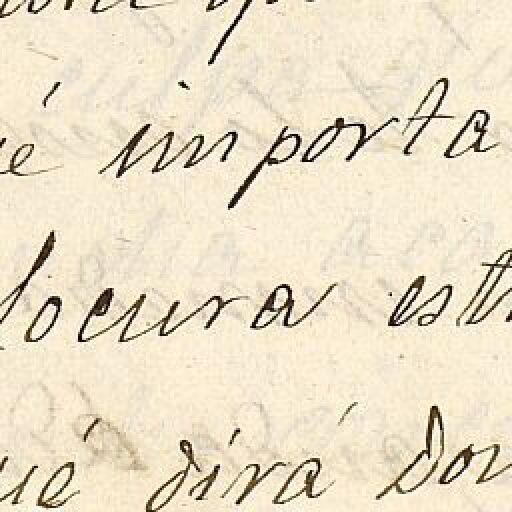 é importa
locura est
ué dirá Don